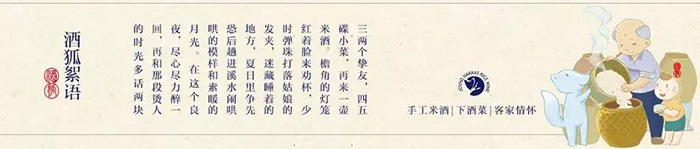 酒狐絮语
三两个挚友，四五
碟小菜，再来一壶
米酒。檐角的灯笼
红着脸来劝杯，少
时弹珠打落姑娘的
发夹，迷藏睡着的
地方，夏日里争先
恐后趟进溪水闹哄
哄的模样和素暖的
月光。在这个良
夜，尽心尽力醉一
回，再和那段烫人
的时光多话两块
手工米酒|下酒菜|客家情怀